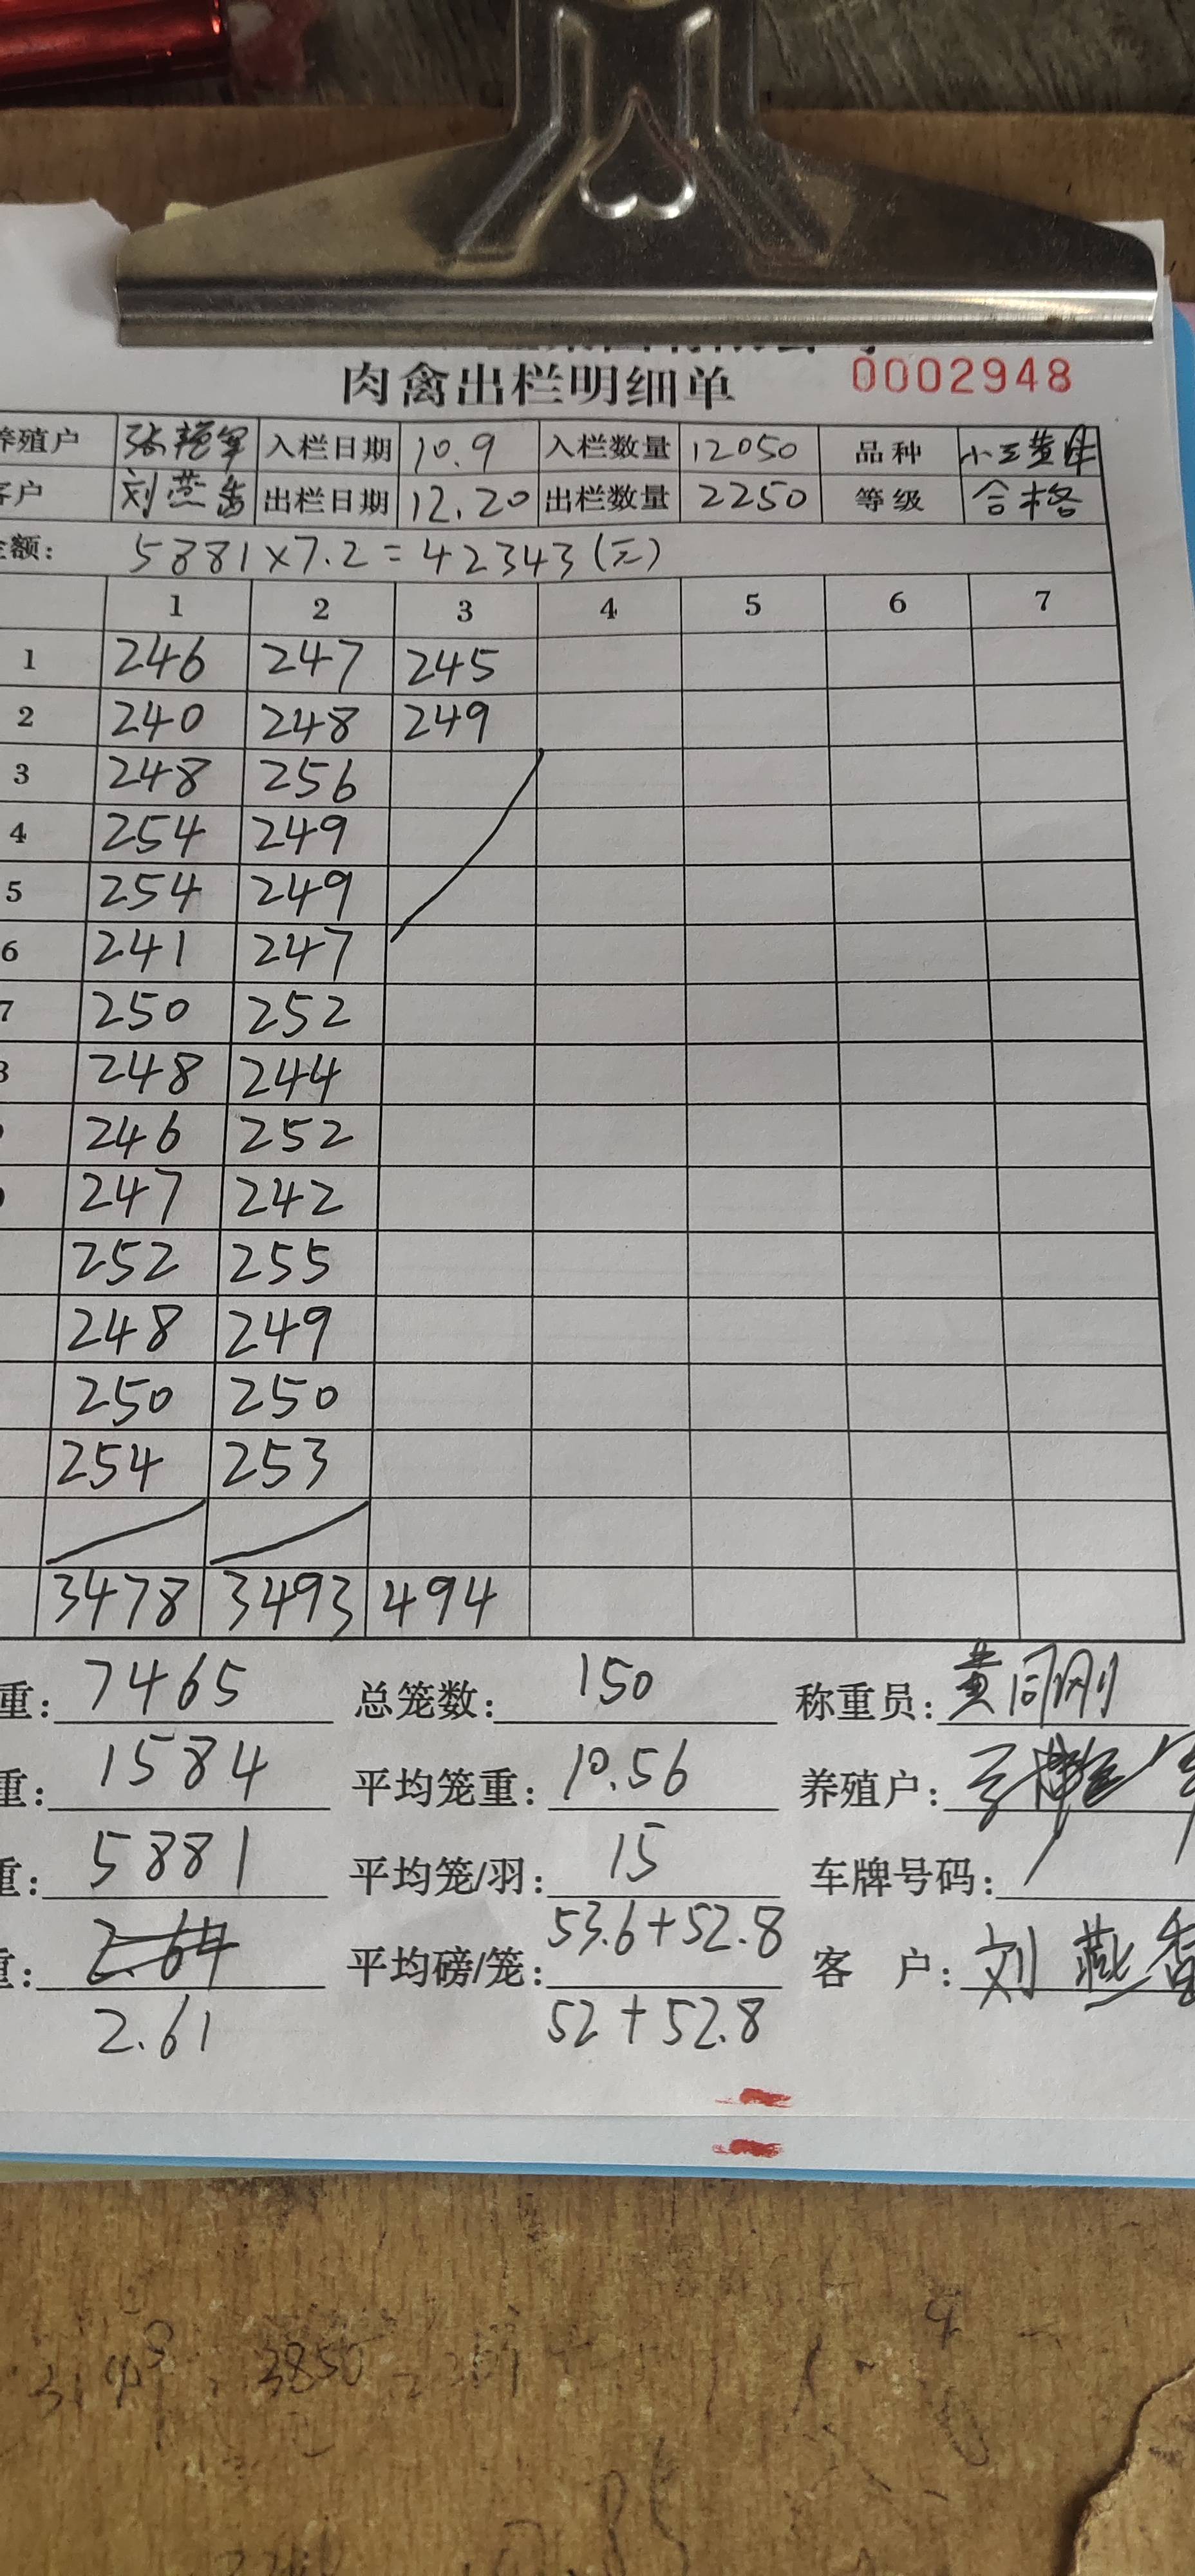 肉禽出栏明细单 0002948
养殖户 张艳军 入栏日期 10.9 入栏数量 12050 品种 小三黄
客户 刘燕香 出栏日期 12.20 出栏数量 2250 等级 合格
金额: 5881×7.2=42343(元)
1 2 3 4 5 6 7
1 246 247 245
2 240 248 249
3 248 256
4 254 249
5 254 249
6 241 247
7 250 252
8 248 244
246 252
247 242
252 255
248 249
250 250
254 253
3478 3493 494
重: 7465 总笼数: 150 称重员: 黄同刚
重: 1584 平均笼重: 10.56 养殖户:
重: 5881 平均笼/羽: 15 车牌号码:
重: 2.64 平均磅/笼: 53.6+52.8 客 户: 刘燕香
2.61 52+52.8
3850